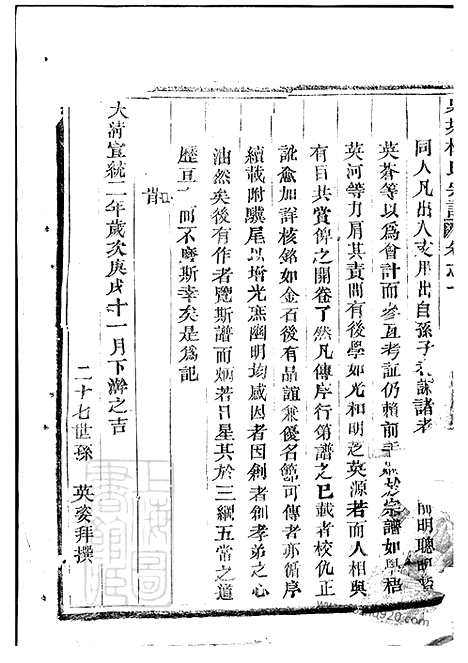 同人凡出入支用出自孫子 諸者 明聰
英蒼等以爲會計而參互考証仍賴前 宗譜如學梧
英河等力肩其責間有後學如光和明芝英源若而人相與
有目共賞俾之開卷了然凡傳序行第譜之已載者校仇正
訛愈加詳核銘如金石後有品誼兼優名節可傳者亦循序
續載附驥尾以增光庶幽明均感因者因創者創孝弟之心
油然矣後有作者覽斯譜而炳若日星其於三綱五常之道
歷亘 而不磨斯幸矣是爲記
旹
大淸宣統二年歲次庚戌十一月下澣之吉
二十七世孫 英姿拜撰